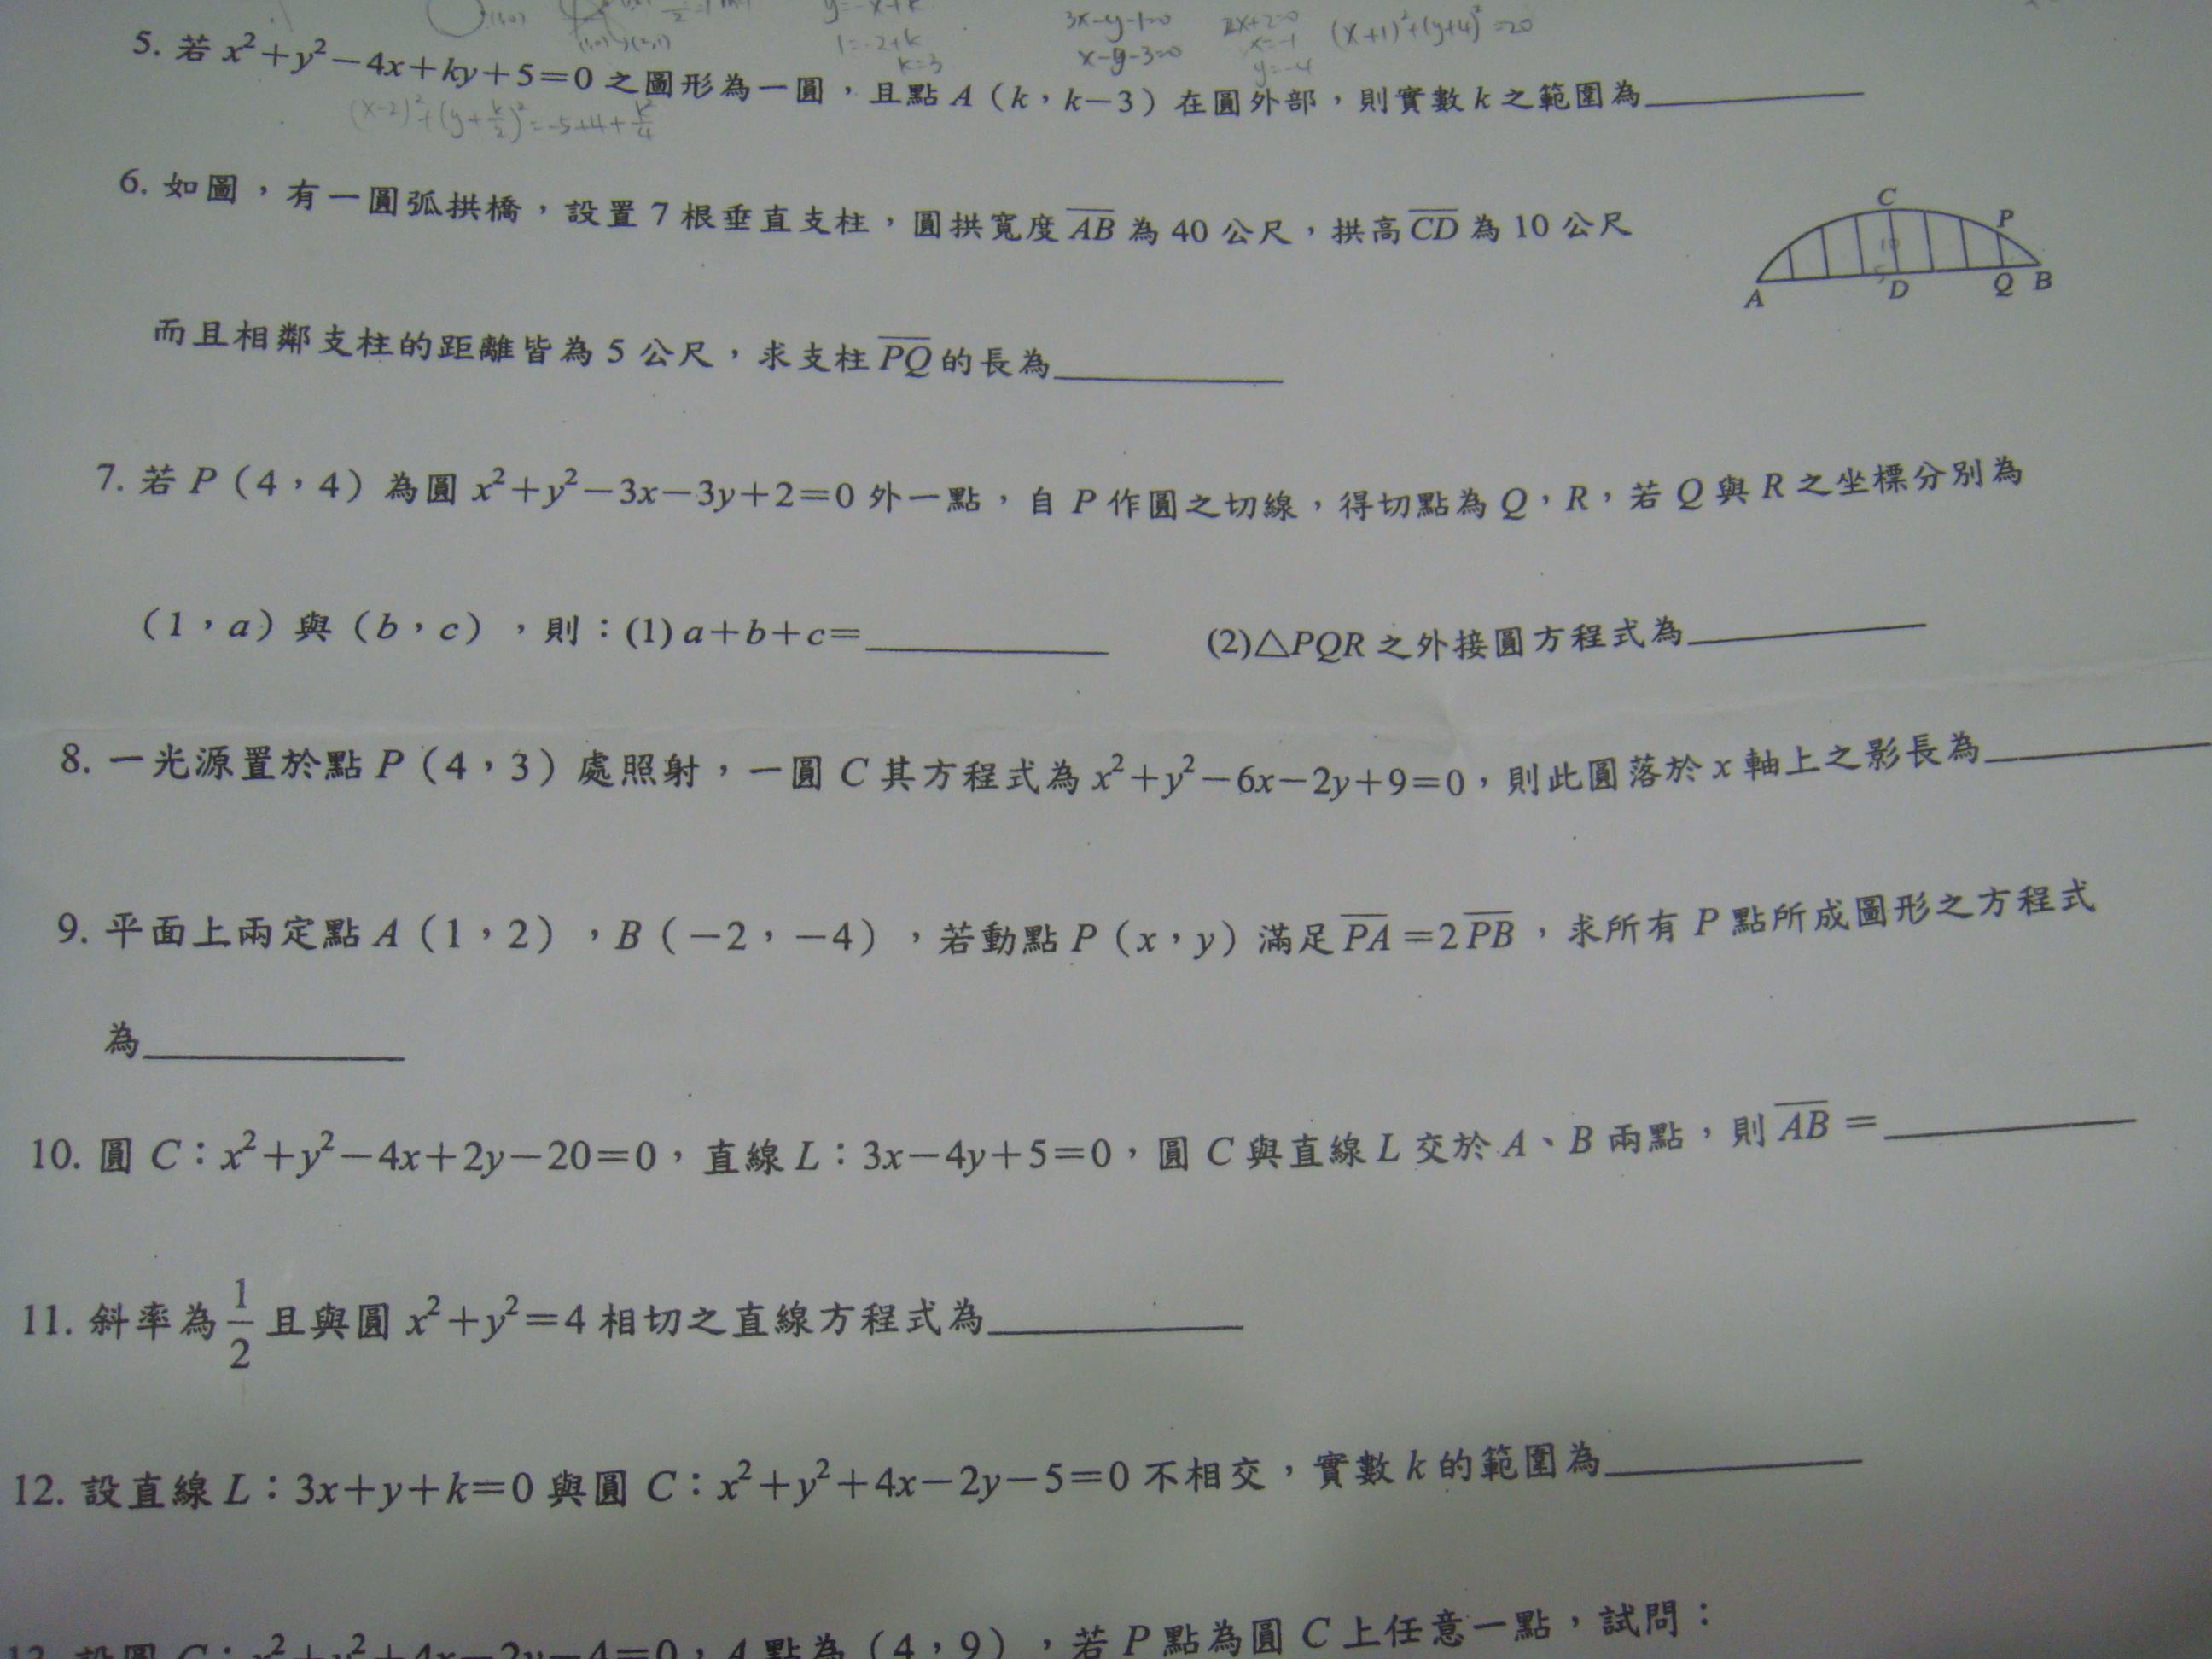 y=-x+k
1=-2+k
k=3
3x-y-1=0
x-y-3=0
2x+2=0
x=-1
y=-4
(x+1)²+(y+4)²=20
5. 若 x²+y²-4x+ky+5=0 之圖形為一圓，且點 A（k，k-3）在圓外部，則實數 k 之範圍為
(x-2)²+(y+k/2)²=-5+4+k²/4
6. 如圖，有一圓弧拱橋，設置 7 根垂直支柱，圓拱寬度 AB 為 40 公尺，拱高 CD 為 10 公尺
C
P
10
5
A
D
Q
B
而且相鄰支柱的距離皆為 5 公尺，求支柱 PQ 的長為
7. 若 P（4，4）為圓 x²+y²-3x-3y+2=0 外一點，自 P 作圓之切線，得切點為 Q，R，若 Q 與 R 之坐標分別為
（1，a）與（b，c），則：(1) a+b+c= (2)△PQR 之外接圓方程式為
8. 一光源置於點 P（4，3）處照射，一圓 C 其方程式為 x²+y²-6x-2y+9=0，則此圓落於 x 軸上之影長為
9. 平面上兩定點 A（1，2），B（-2，-4），若動點 P（x，y）滿足 PA=2PB，求所有 P 點所成圖形之方程式
為
10. 圓 C：x²+y²-4x+2y-20=0，直線 L：3x-4y+5=0，圓 C 與直線 L 交於 A、B 兩點，則 AB =
11. 斜率為 1/2 且與圓 x²+y²=4 相切之直線方程式為
12. 設直線 L：3x+y+k=0 與圓 C：x²+y²+4x-2y-5=0 不相交，實數 k 的範圍為
13. 設圓 C：x²+y²+4x-2y-4=0，A 點為（4，9），若 P 點為圓 C 上任意一點，試問：